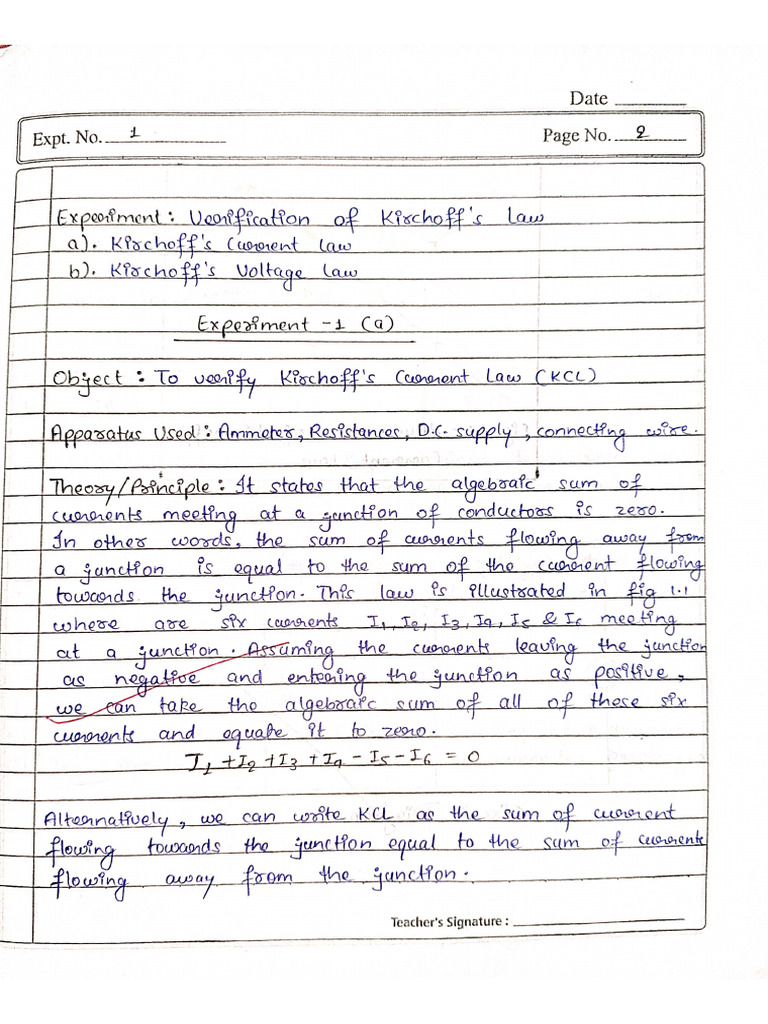 Date
Expt. No. 1
Page No. 2
Experiment: Verification of Kirchoff's Law
a). Kirchoff's Current Law
b). Kirchoff's Voltage Law
Experiment -1 (a)
Object: To verify Kirchoff's Current Law (KCL)
Apparatus Used: Ammeter, Resistances, D.C. supply, connecting wire.
Theory/Principle: It states that the algebraic sum of
currents meeting at a junction of conductors is zero.
In other words, the sum of currents flowing away from
a junction is equal to the sum of the current flowing
towards the junction. This law is illustrated in fig 1.1
where are six currents I1, I2, I3, I4, I5 & I6 meeting
at a junction. Assuming the currents leaving the junction
as negative and entering the junction as positive,
we can take the algebraic sum of all of these six
currents and equate it to zero.
I1 + I2 + I3 + I4 - I5 - I6 = 0
Alternatively, we can write KCL as the sum of current
flowing towards the junction equal to the sum of currents
flowing away from the junction.
Teacher's Signature :